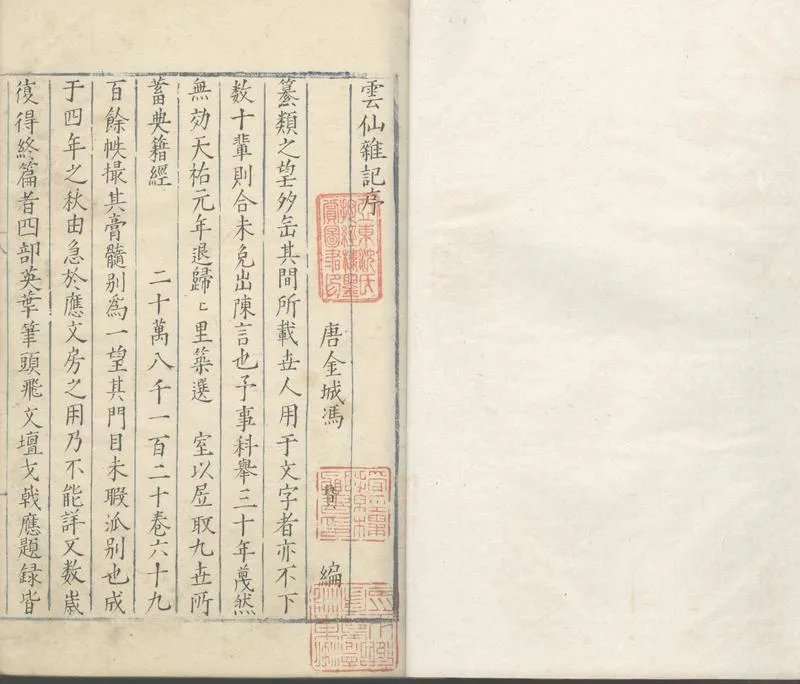 雲仙雜記序
唐金城馮贄編
纂類之望夥矣其間所載世人用于文字者亦不下
数十輩則合未免出陳言也予事科舉三十年蔑然
無効天祐元年退歸〻里築選 室以居取九世所
蓄典籍經 二十萬八千一百二十卷六十九
百餘帙撮其膏髓别為一望其門目未暇派别也成
于四年之秋由急於應文房之用乃不能詳又数嵗
復得終篇者四部英華筆頭飛文壇戈戟應題録皆